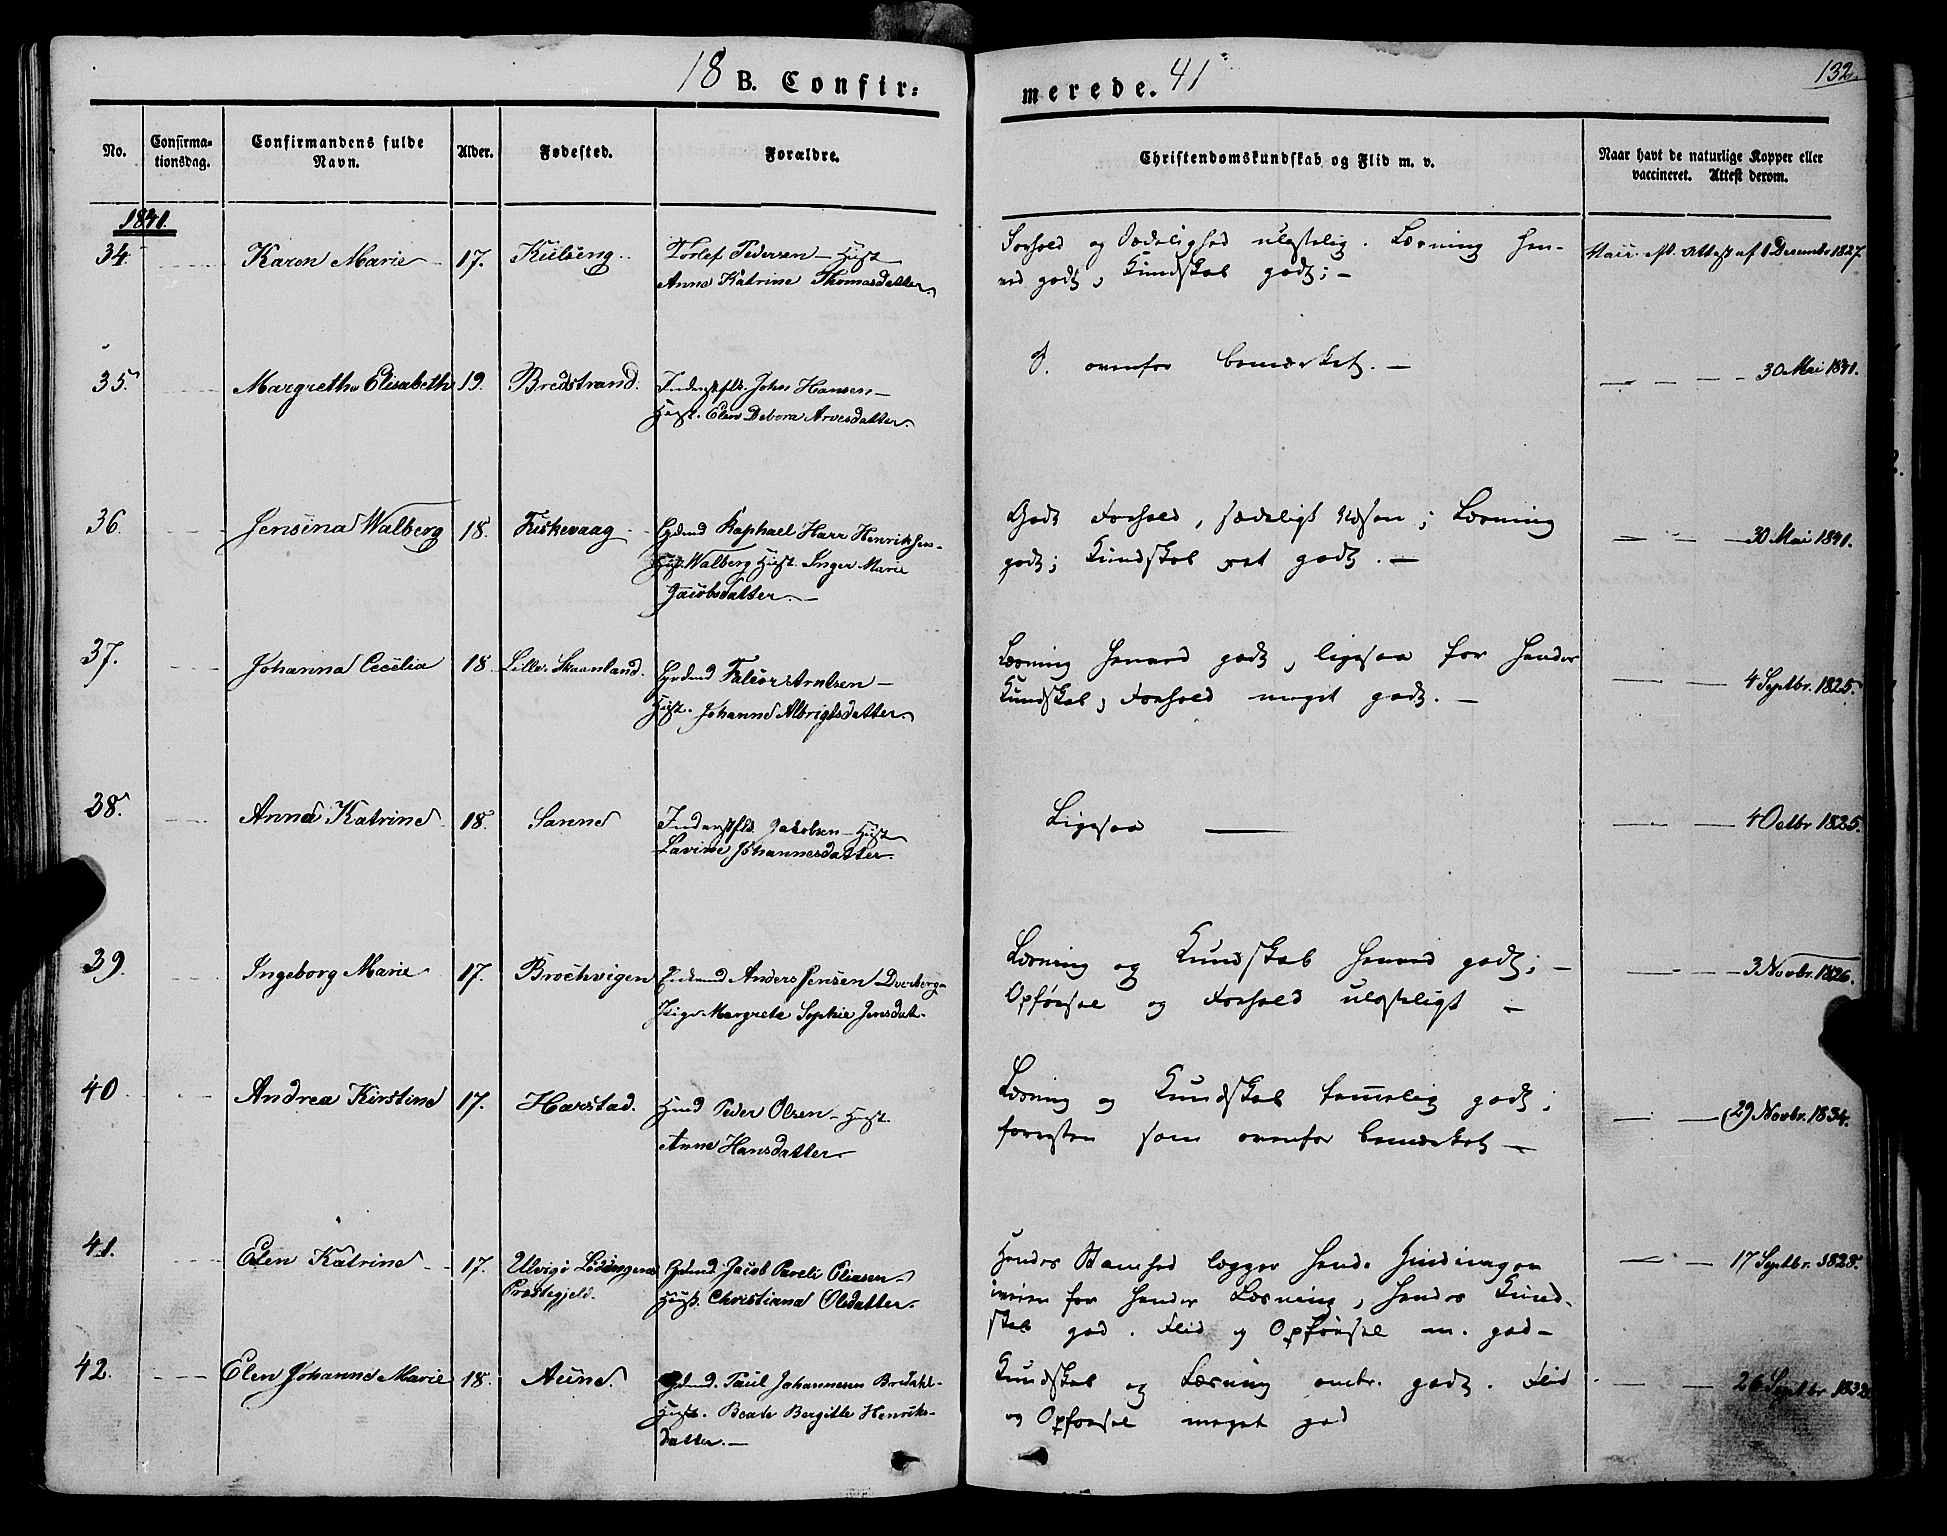 18 B. Confir=
merede. 41
132.
No.
Confirma=
tionsdag.
Confirmandens fulde
Navn.
Alder.
Fødested.
Forældre.
Christendomskundskab og Flid m. v.
Naar havt de naturlige Kopper eller
vaccineret. Attest derom.
1841.
34. Karen Marie 17. Kulseng.
Torlef Pedersen — Hust
Anne Katrine Thomasdatter.
Forhold og Sædelighed ulastelig. Læsning hen-
ved godt, Kundskab godt; —
Vacc. efl. Attest af 1 Decembr 1827.
35. Margrethe Elisabeth 19. Bredstrand.
Inderstflk. John Hansen —
Hust. Elen Debora Arvesdatter.
S. ovenfor bemærket. —
— — 30 Mai 1841.
36. Jensina Walberg 18. Fiskevaag
Gdmd Raphael Harr Henriksen-
Walberg Hust. Inger Marie
Jacobsdatter. —
Godt Forhold, sædeligt Væsen; Læsning
godt; Kundskab ret godt. —
— — 30 Mai 1841.
37. Johanna Cecilia 18. Lille Skaanland.
Gdmd Falcor Arntsen —
Hust. Johanne Albrigtsdatter.
Læsning henved godt, ligesaa for hendes
Kundskab, Forhold meget godt. —
— — 4 Septbr. 1825.
38. Anna Katrine 18. Sanne
Inderstflk. Jakobsen — Hust
Lavine Johannesdatter.
Ligesaa —
— — 4 Octbr 1825.
39. Ingeborg Marie 17. Brochvigen
Anders Jensen Dverberg-
Pige Margrete Sophie Jensdatt.
Læsning og Kundskab henved godt; —
Opførsel og Forhold ulasteligt —
— — 3 Novbr. 1826.
40. Andrea Kirstine 17. Harstad.
Hmd Peder Olsen — Hust.
Anne Hansdatter.
Læsning og Kundskab temmelig godt;
forresten som ovenfor bemærket —
— — 29 Novbr. 1834.
41. Elen Katrine 17. Ulvigi Lødingens
Præstegjeld.
Gdmd. Jacob Pareli Eliasen —
Hust. Christiana Olsdatter.
Hendes Stamhed lægger hende Hindringen
iveien for hendes Læsning, hendes Kund-
skab god. Flid og Opførsel m. god —
— — 17 Septbr. 1828.
42. Elen Johanne Marie 18. Aune.
Gdmd. Paul Johannesen Bredahl-
Hust. Beate Bergitte Henriks-
datter. —
Kundskab og Læsning omtr. godt. Flid
og Opførsel meget god
— — 26 Septbr